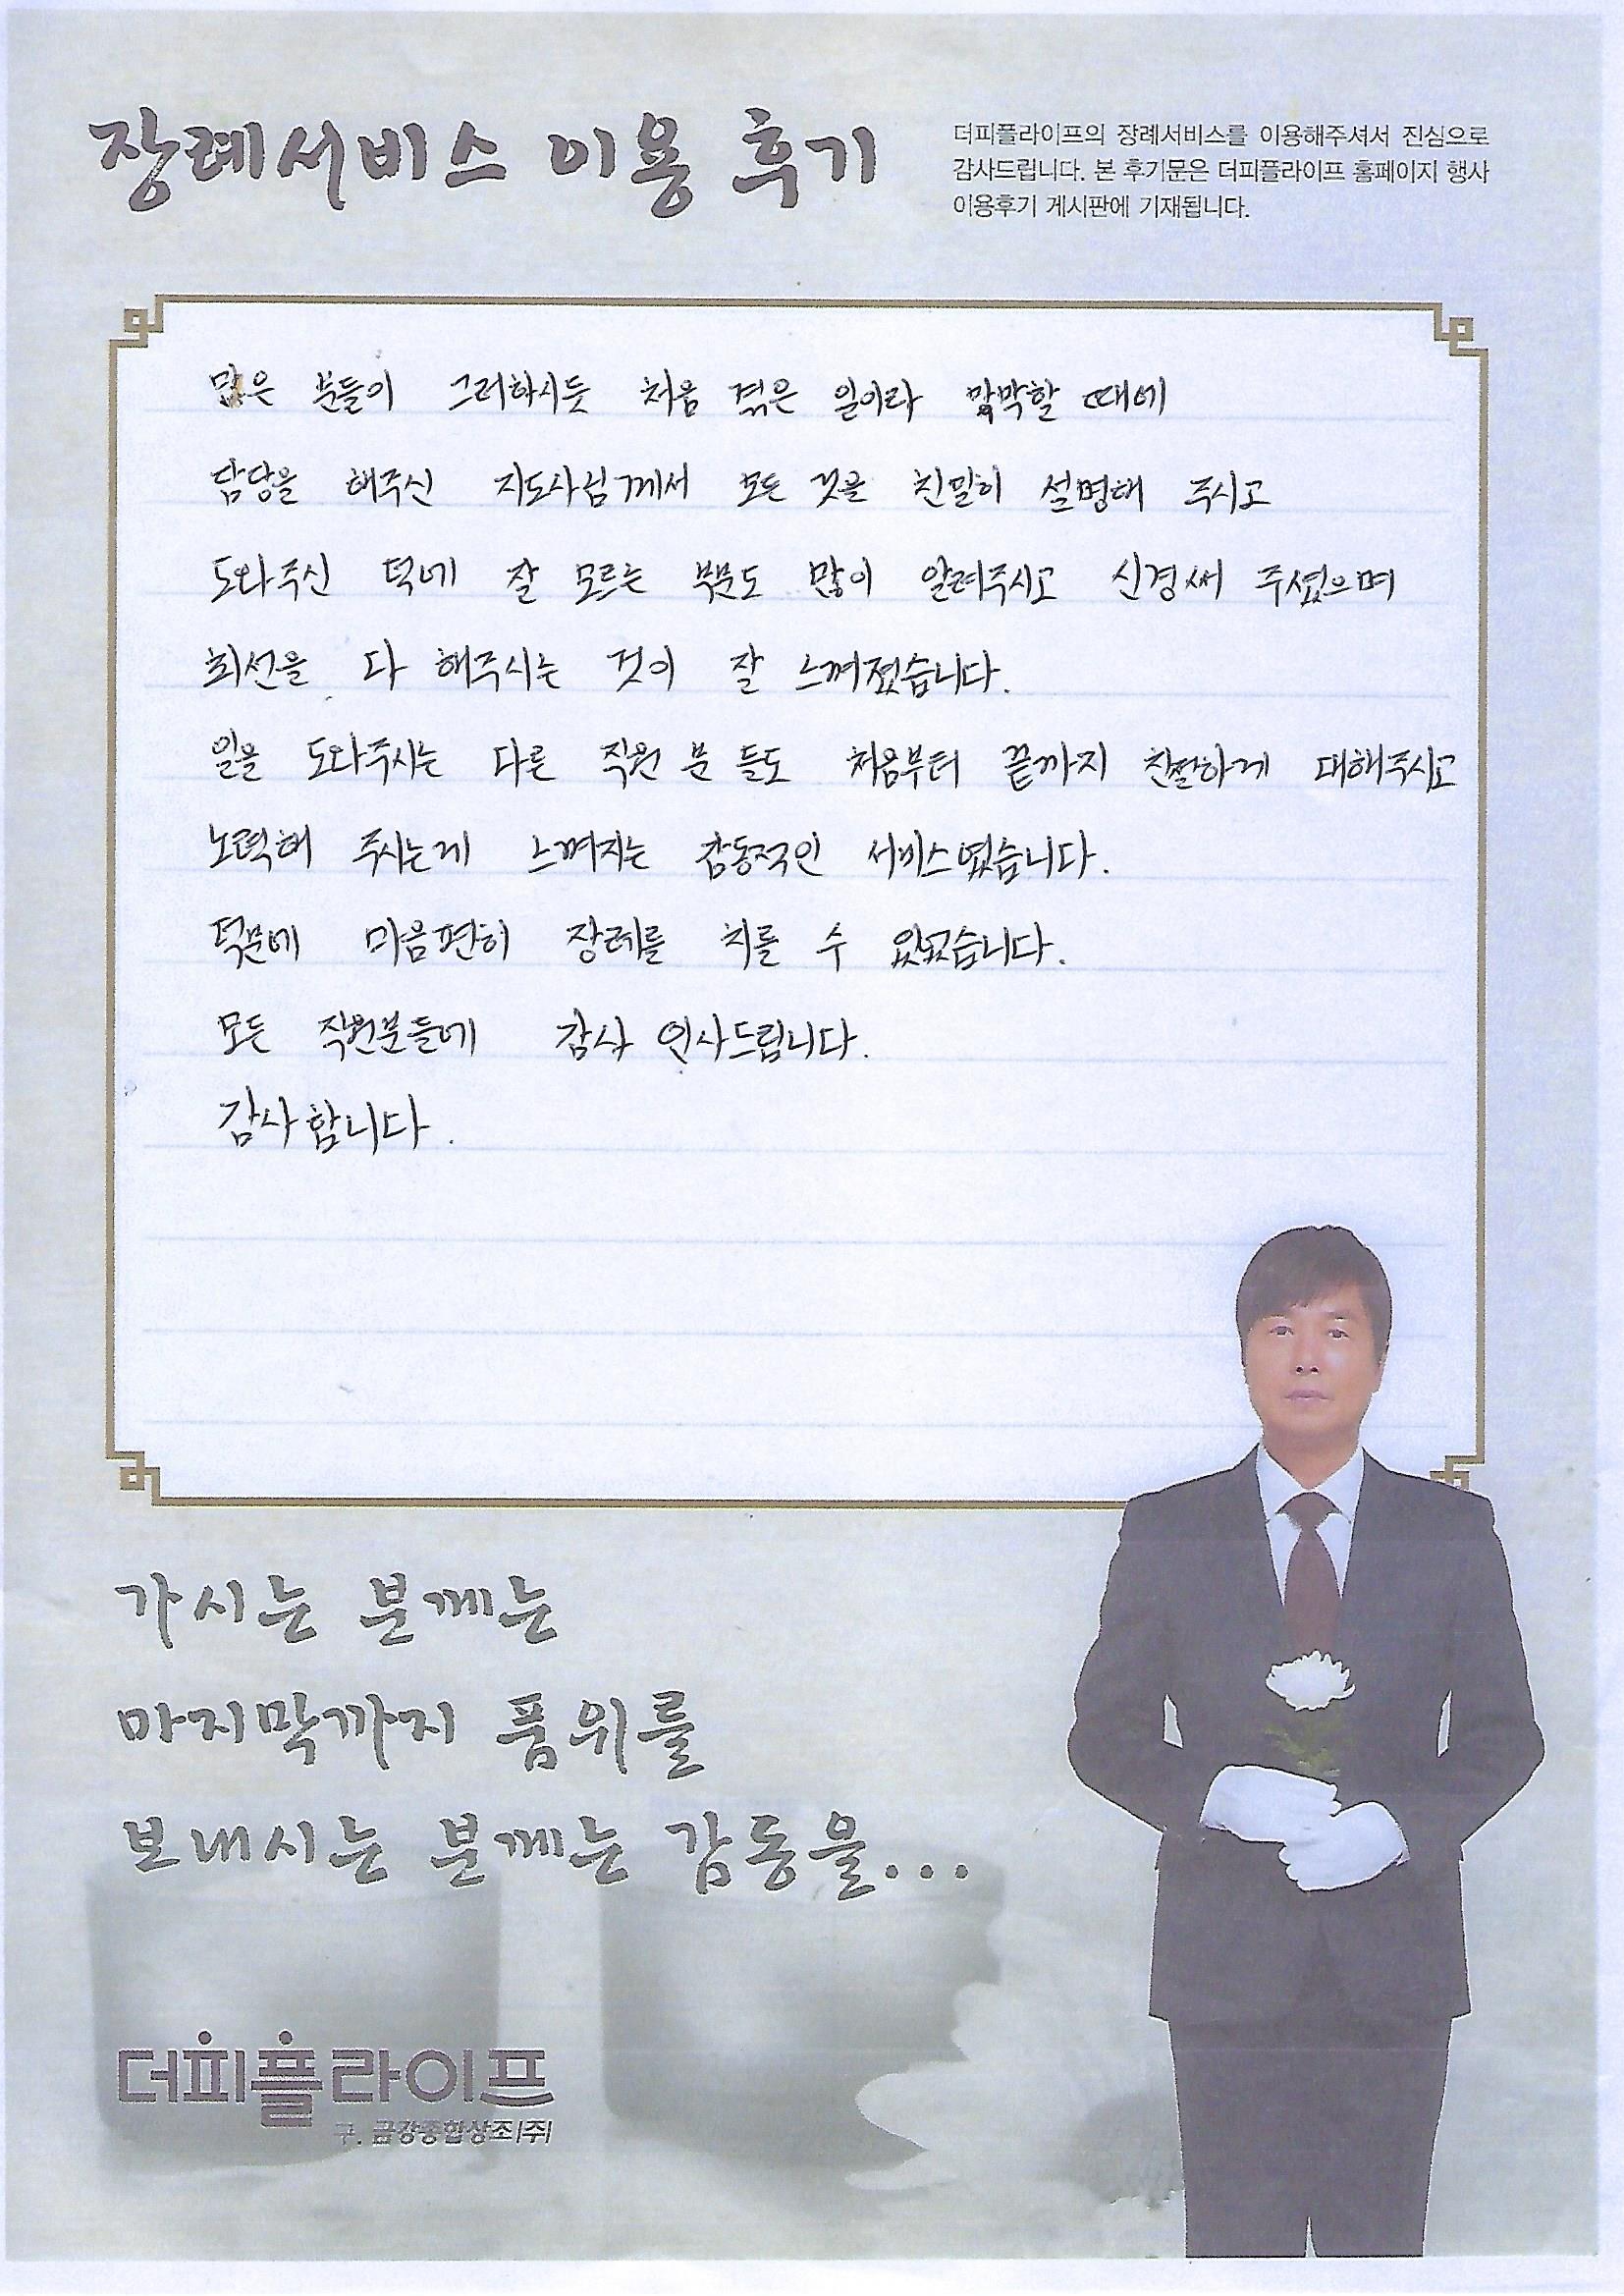 장례서비스 이용 후기
더피플라이프의 장례서비스를 이용해주셔서 진심으로
감사드립니다. 본 후기문은 더피플라이프 홈페이지 행사
이용후기 게시판에 기재됩니다.
많은 분들이 그러하시듯 처음 겪은 일이라 막막할 때에
담당을 해주신 지도사님께서 모든 것을 친밀히 설명해 주시고
도와주신 덕에 잘 모르는 부분도 많이 알려주시고 신경써 주셨으며
최선을 다 해주시는 것이 잘 느껴졌습니다.
일을 도와주시는 다른 직원 분 들도 처음부터 끝까지 친절하게 대해주시고
노력해 주시는게 느껴지는 감동적인 서비스였습니다.
덕분에 마음편히 장례를 치를 수 있었습니다.
모든 직원분들에 감사 인사드립니다.
감사합니다.
가시는 분께는
마지막까지 품위를
보내시는 분께는 감동을...
더피플라이프
구. 금강종합상조(주)